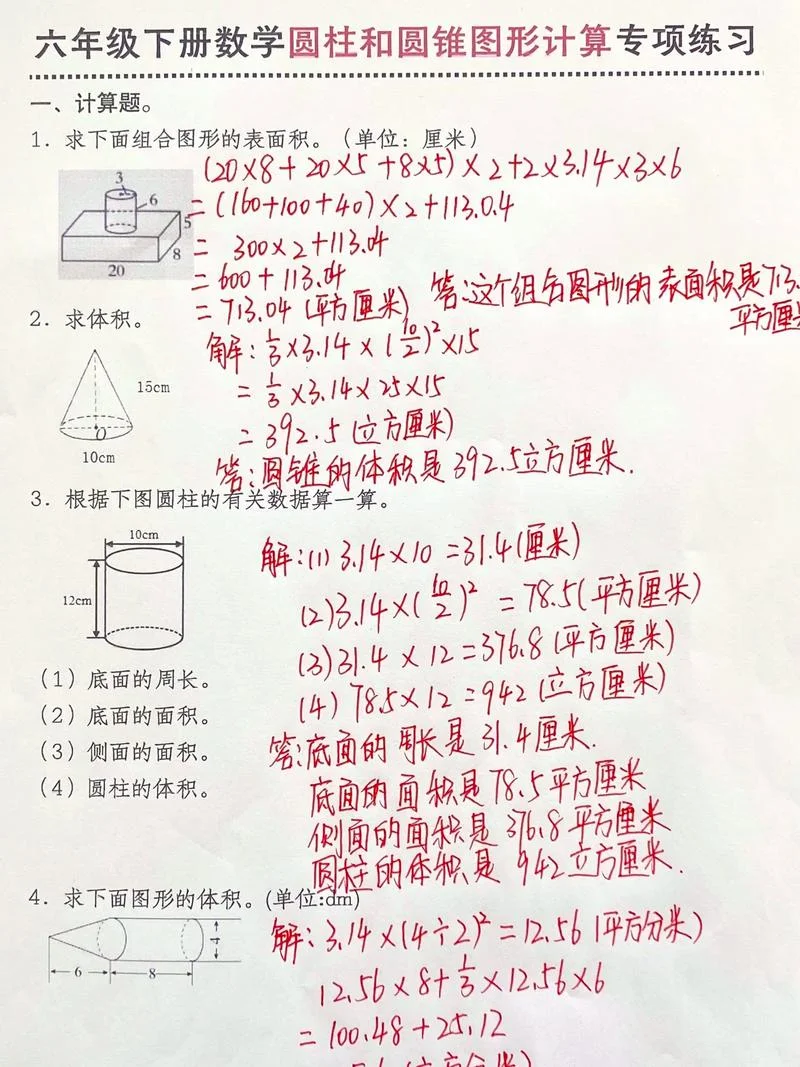 六年级下册数学圆柱和圆锥图形计算专项练习
一、计算题。
1. 求下面组合图形的表面积。（单位：厘米）
(20×8+20×5+8×5)×2+2×3.14×3×6
3
6
5
8
20
=(160+100+40)×2+113.0.4
= 300×2+113.04
=600+113.04
=713.04(平方厘米)
答:这个组合图形的表面积是713.
平方厘
2. 求体积。
15cm
O
10cm
解:1/3×3.14×(10/2)²×15
=1/3×3.14×25×15
=392.5(立方厘米)
答:圆锥的体积是392.5立方厘米.
3. 根据下图圆柱的有关数据算一算。
10cm
12cm
解:(1)3.14×10=31.4(厘米)
(2)3.14×(10/2)²=78.5(平方厘米)
(3)31.4×12=376.8(平方厘米)
(4)78.5×12=942(立方厘米)
（1）底面的周长。
（2）底面的面积。
（3）侧面的面积。
（4）圆柱的体积。
答:底面的周长是31.4厘米.
底面的面积是78.5平方厘米
侧面的面积是376.8平方厘米
圆柱的体积是942立方厘米.
4. 求下面图形的体积。(单位:dm)
6
8
4
解:3.14×(4÷2)²=12.56(平方分米)
12.56×8+1/3×12.56×6
=100.48+25.12